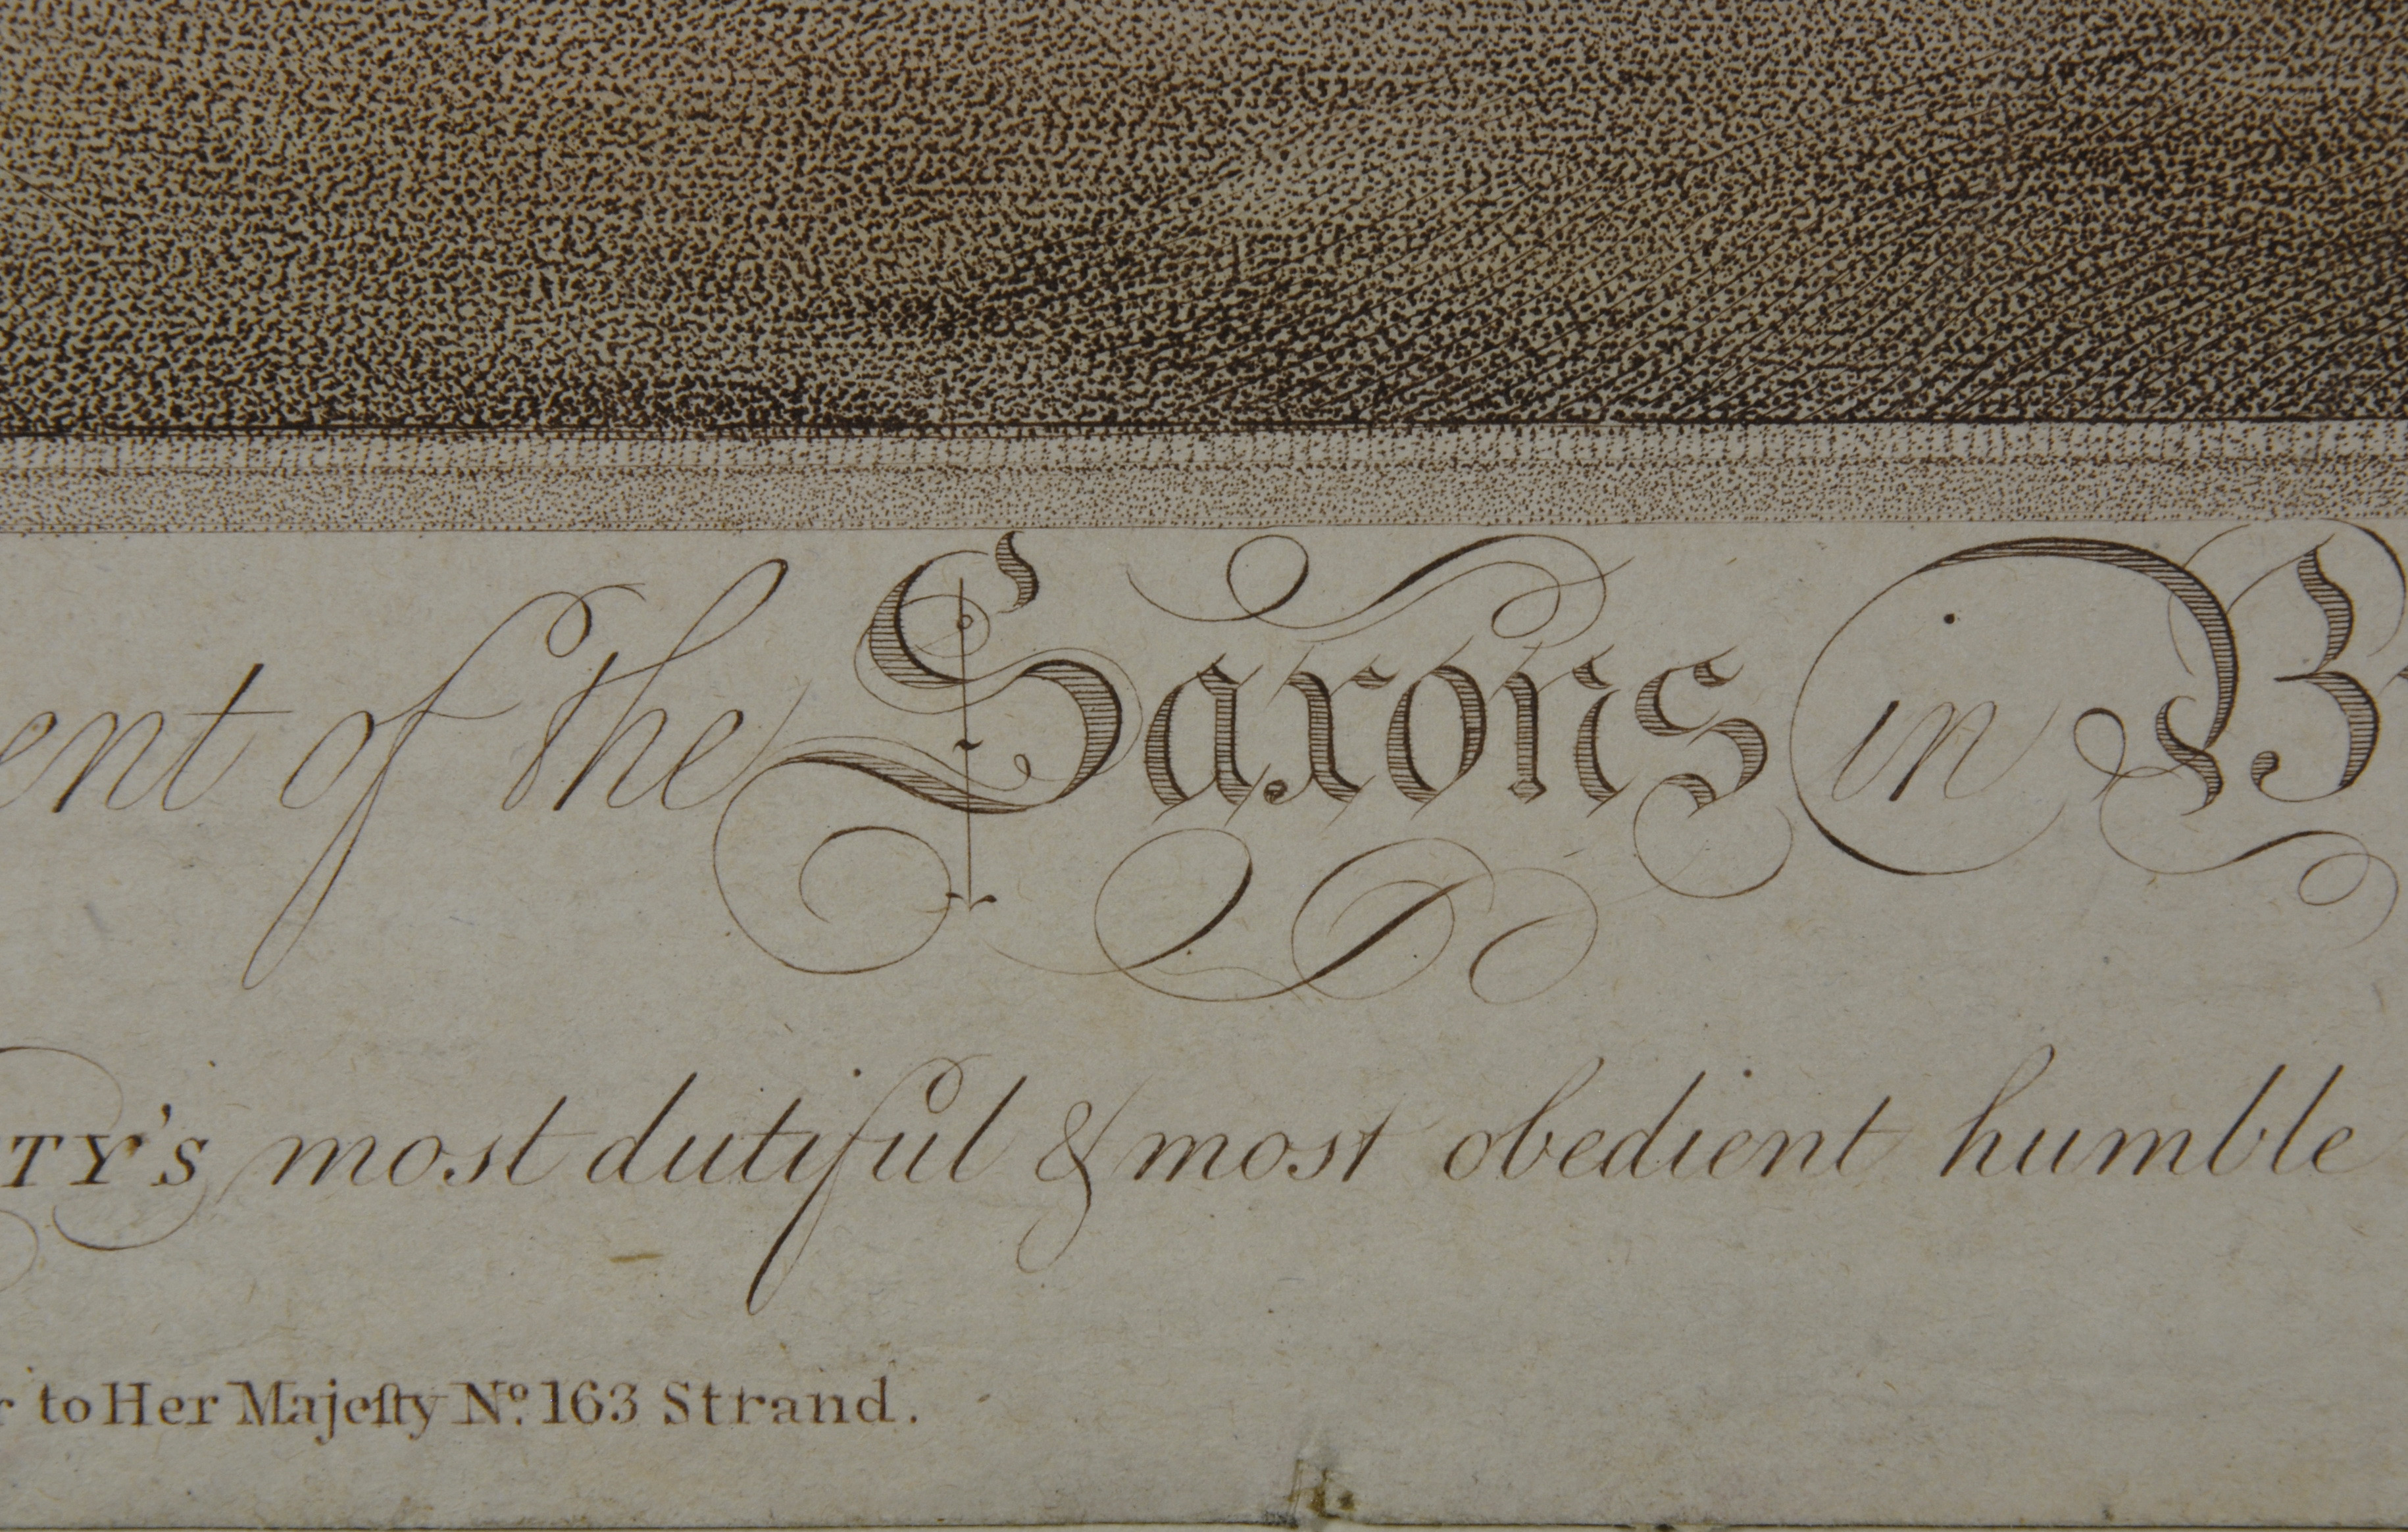 ent of the Saxons in B
TY's most dutiful & most obedient humble
r to Her Majeſty Nº. 163 Strand.